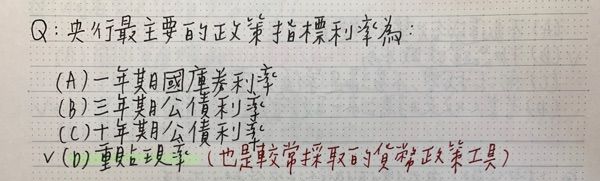 Q：央行最主要的政策指標利率為：
(A) 一年期國庫券利率
(B) 三年期公債利率
(C) 十年期公債利率
v (D) 重貼現率 (也是較常採取的貨幣政策工具)